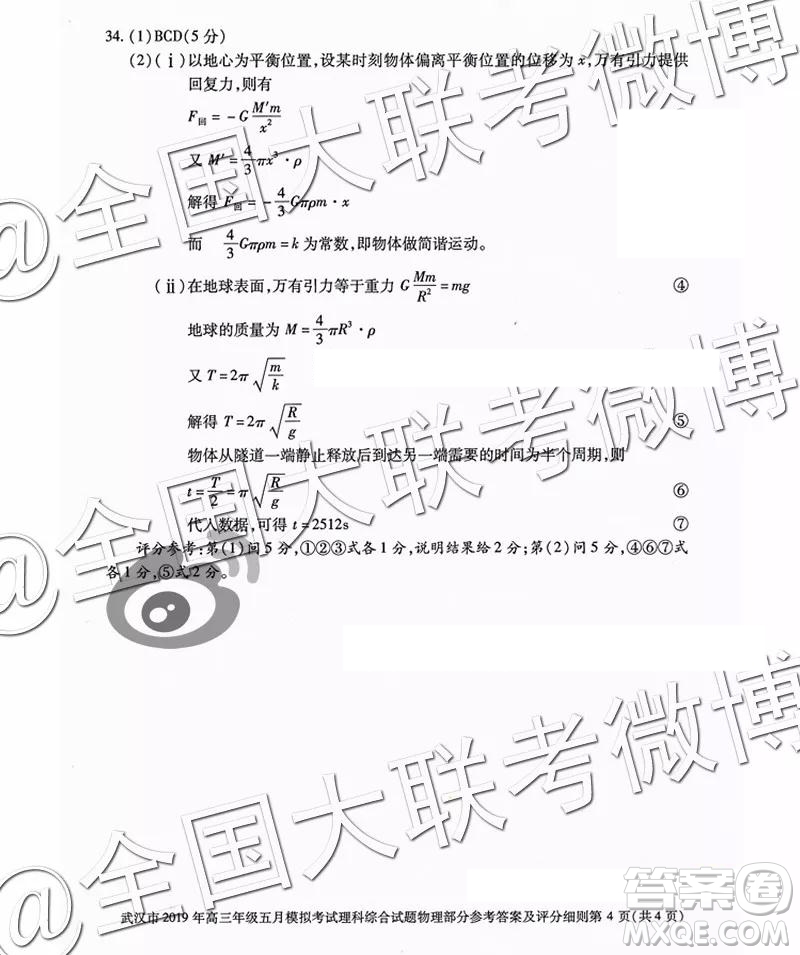 34. (1)BCD(5分)
(2)(ⅰ)以地心为平衡位置,设某时刻物体偏离平衡位置的位移为x,万有引力提供
回复力,则有
F回=-G M′m/x²
又 M′=4/3 πx³·ρ
解得 F回=-4/3 Gπρm·x
而 4/3 Gπρm=k 为常数,即物体做简谐运动。
(ⅱ)在地球表面,万有引力等于重力 G Mm/R²=mg ④
地球的质量为 M=4/3 πR³·ρ
又 T=2π√(m/k)
解得 T=2π√(R/g) ⑤
物体从隧道一端静止释放后到达另一端需要的时间为半个周期,则
t=T/2=π√(R/g) ⑥
代入数据,可得 t=2512s ⑦
评分参考:第(1)问5分,①②③式各1分,说明结果给2分;第(2)问5分,④⑥⑦式
各1分,⑤式2分。
武汉市2019年高三年级五月模拟考试理科综合试题物理部分参考答案及评分细则第4页(共4页)
@全国大联考微博
@全国大联考微博
@全国大联考微博
答案卷
MXQE.COM